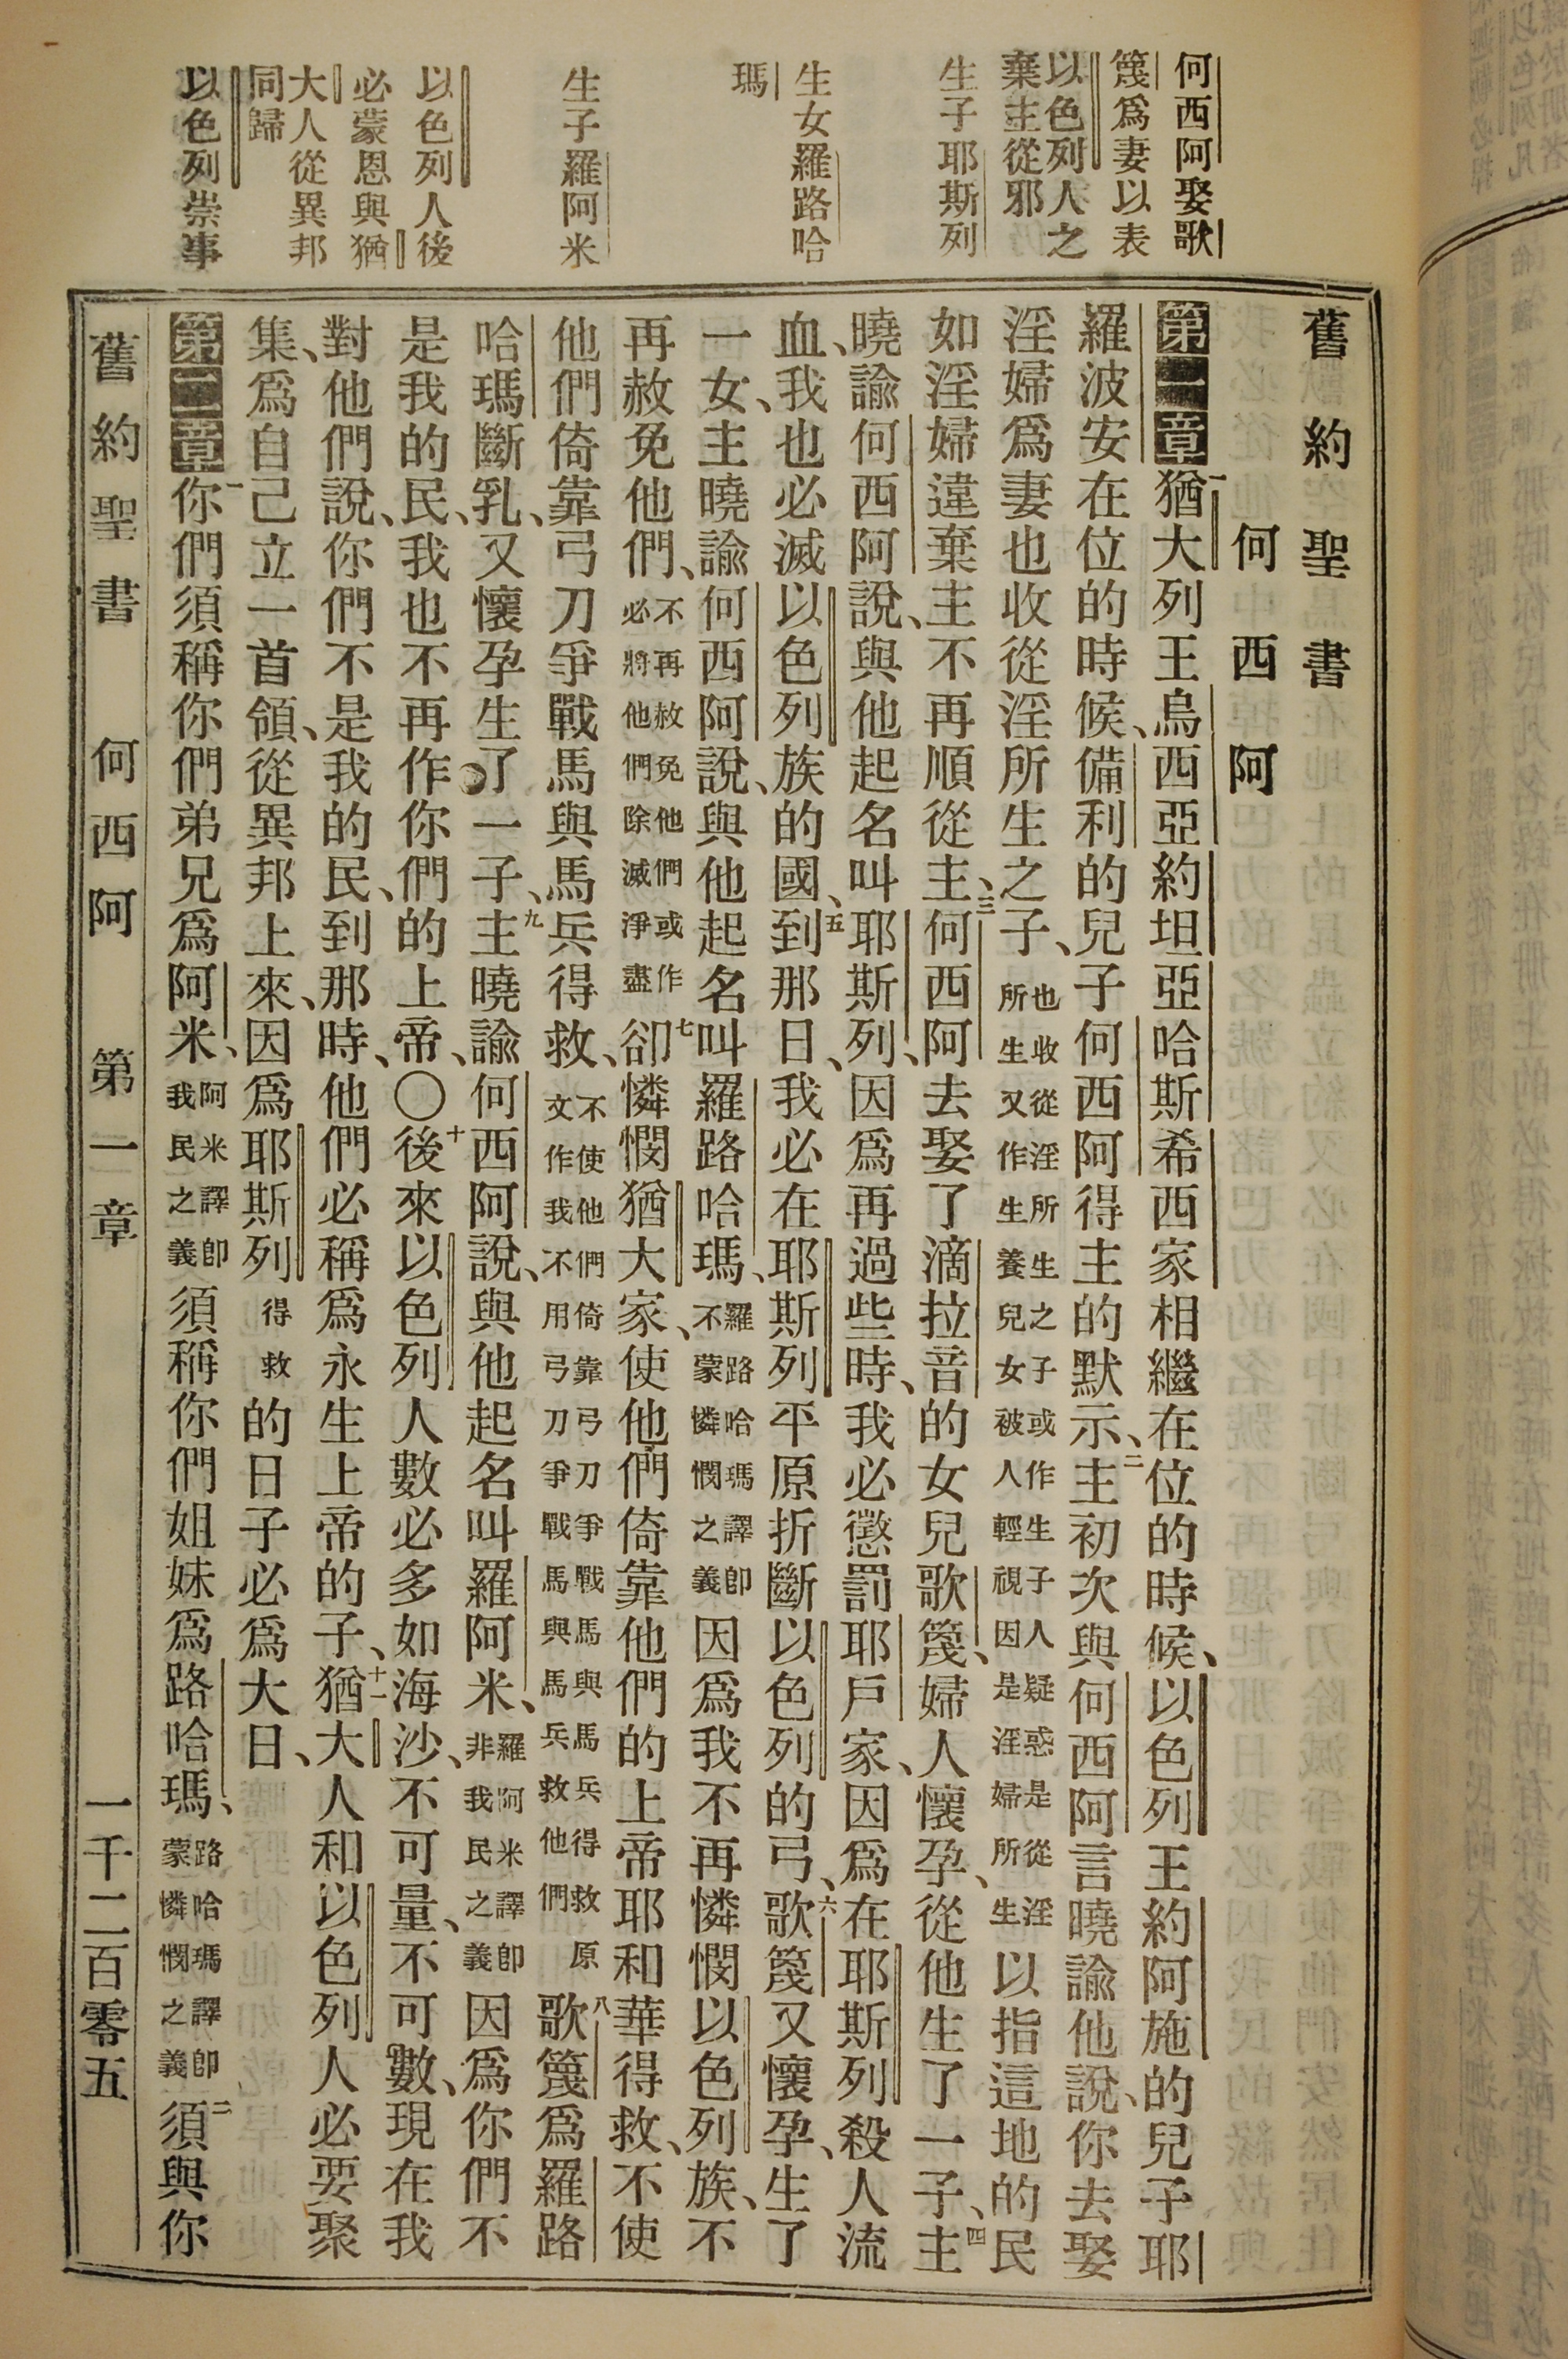 何西阿娶歌
篾爲妻以表
以色列人之
棄主從邪
生子耶斯列
生女羅路哈
瑪
生子羅阿米
以色列人後
必蒙恩與猶
大人從異邦
同歸
以色列崇事
舊約聖書
何西阿
第一章一猶大列王烏西亞約坦亞哈斯希西家相繼在位的時候、以色列王約阿施的兒子耶
羅波安在位的時候、備利的兒子何西阿得主的默示、二主初次與何西阿言曉諭他說、你去娶
淫婦爲妻也收從淫所生之子、也收從淫所生之子或作生子人疑惑是從淫所生又作生養兒女被人輕視因是淫婦所生以指這地的民
如淫婦違棄主不再順從主、三何西阿去娶了滴拉音的女兒歌篾、婦人懷孕、從他生了一子、四主
曉諭何西阿說、與他起名叫耶斯列、因爲再過些時、我必懲罰耶戶家、因爲在耶斯列殺人流
血、我也必滅以色列族的國、五到那日、我必在耶斯列平原折斷以色列的弓、六歌篾又懷孕、生了
一女、主曉諭何西阿說、與他起名叫羅路哈瑪、羅路哈瑪譯卽不蒙憐憫之義因爲我不再憐憫以色列族、不
再赦免他們、不再赦免他們或作必將他們除滅淨盡七卻憐憫猶大家、使他們倚靠他們的上帝耶和華得救、不使
他們倚靠弓刀爭戰馬與馬兵得救、不使他們倚靠弓刀爭戰馬與馬兵得救原文作我不用弓刀爭戰馬與馬兵救他們八歌篾爲羅路
哈瑪斷乳、又懷孕生了一子、九主曉諭何西阿說、與他起名叫羅阿米、羅阿米譯卽非我民之義因爲你們不
是我的民、我也不再作你們的上帝、〇十後來以色列人數必多如海沙、不可量、不可數、現在我
對他們說、你們不是我的民、到那時、他們必稱爲永生上帝的子、十一猶大人和以色列人必要聚
集、爲自己立一首領、從異邦上來、因爲耶斯列得救的日子必爲大日、
第二章一你們須稱你們弟兄爲阿米、阿米譯卽我民之義須稱你們姐妹爲路哈瑪、路哈瑪譯卽蒙憐憫之義二須與你
舊約聖書 何西阿 第一章 一千二百零五